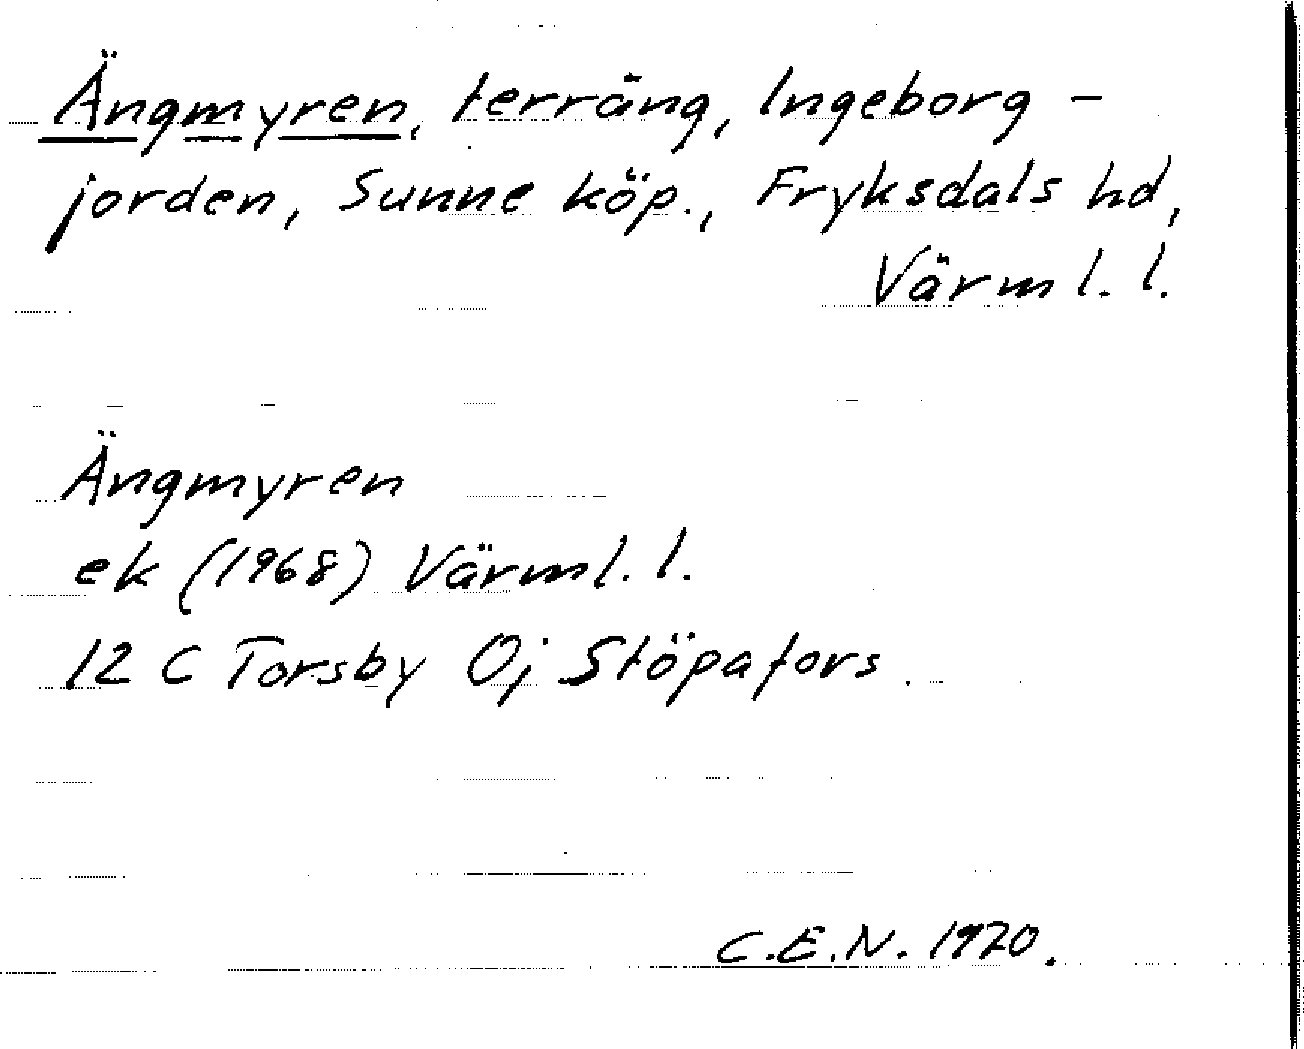 Ängmyren, terräng, Ingeborg-
jorden, Sunne köp., Fryksdals hd,
Värml. l.
Ängmyren
ek (1968) Värml. l.
12 C Torsby Oj Stöpafors
C.E.N. 1970.